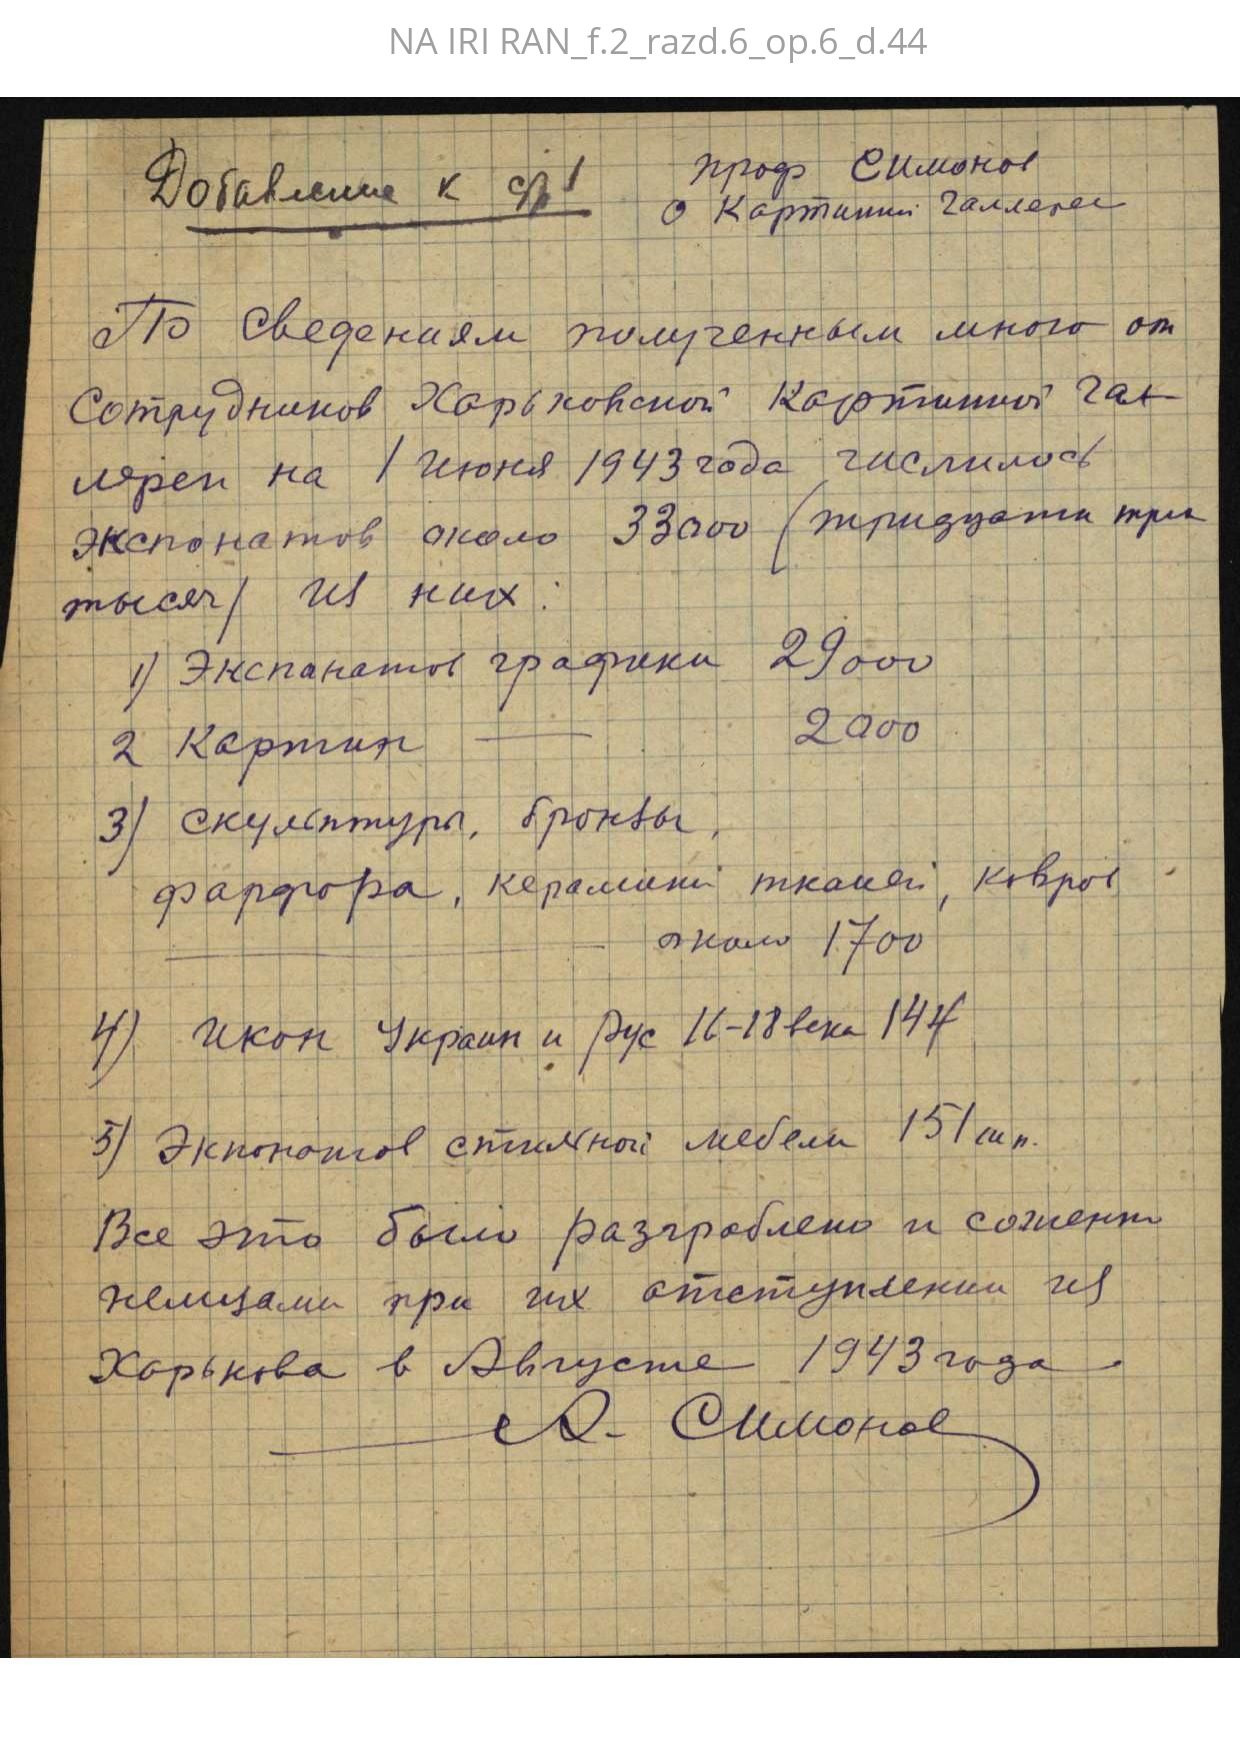 NA IRI RAN_f.2_razd.6_op.6_d.44
Добавление к стр 1
проф Симонов
о Картинной Галлерее
По сведениям полученным мною от
Сотрудников Харьковской Картинной Гал-
лереи на 1 июня 1943 года числилось
экспонатов около 33000 (тридцати три
тысяч) из них:
1) Экспанатов графики 29000
2 Картин — 2000
3) скульптуры, бронзы,
фарфора, керамики тканей, ковров
— около 1700
4) икон Украин и Рус 16-18 века 144
5) Экпонатов стильной мебели 151 шт.
Все это было разграблено и сожжено
немцами при их отступлении из
Харькова в Августе 1943 года.
А. Симонов